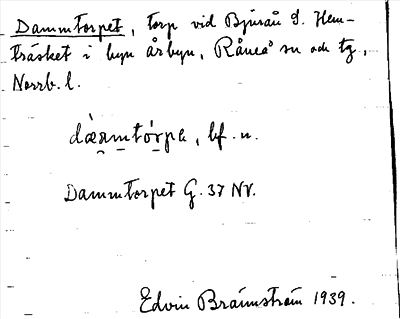 Dammtorpet, torp vid Bjuraå S. Hem-
träsket i byn Årbyn, Råneå sn och tg,
Norrb. l.
dàmmtórpe, bf. n.
Dammtorpet G. 37 NV.
Edvin Brännström 1939.